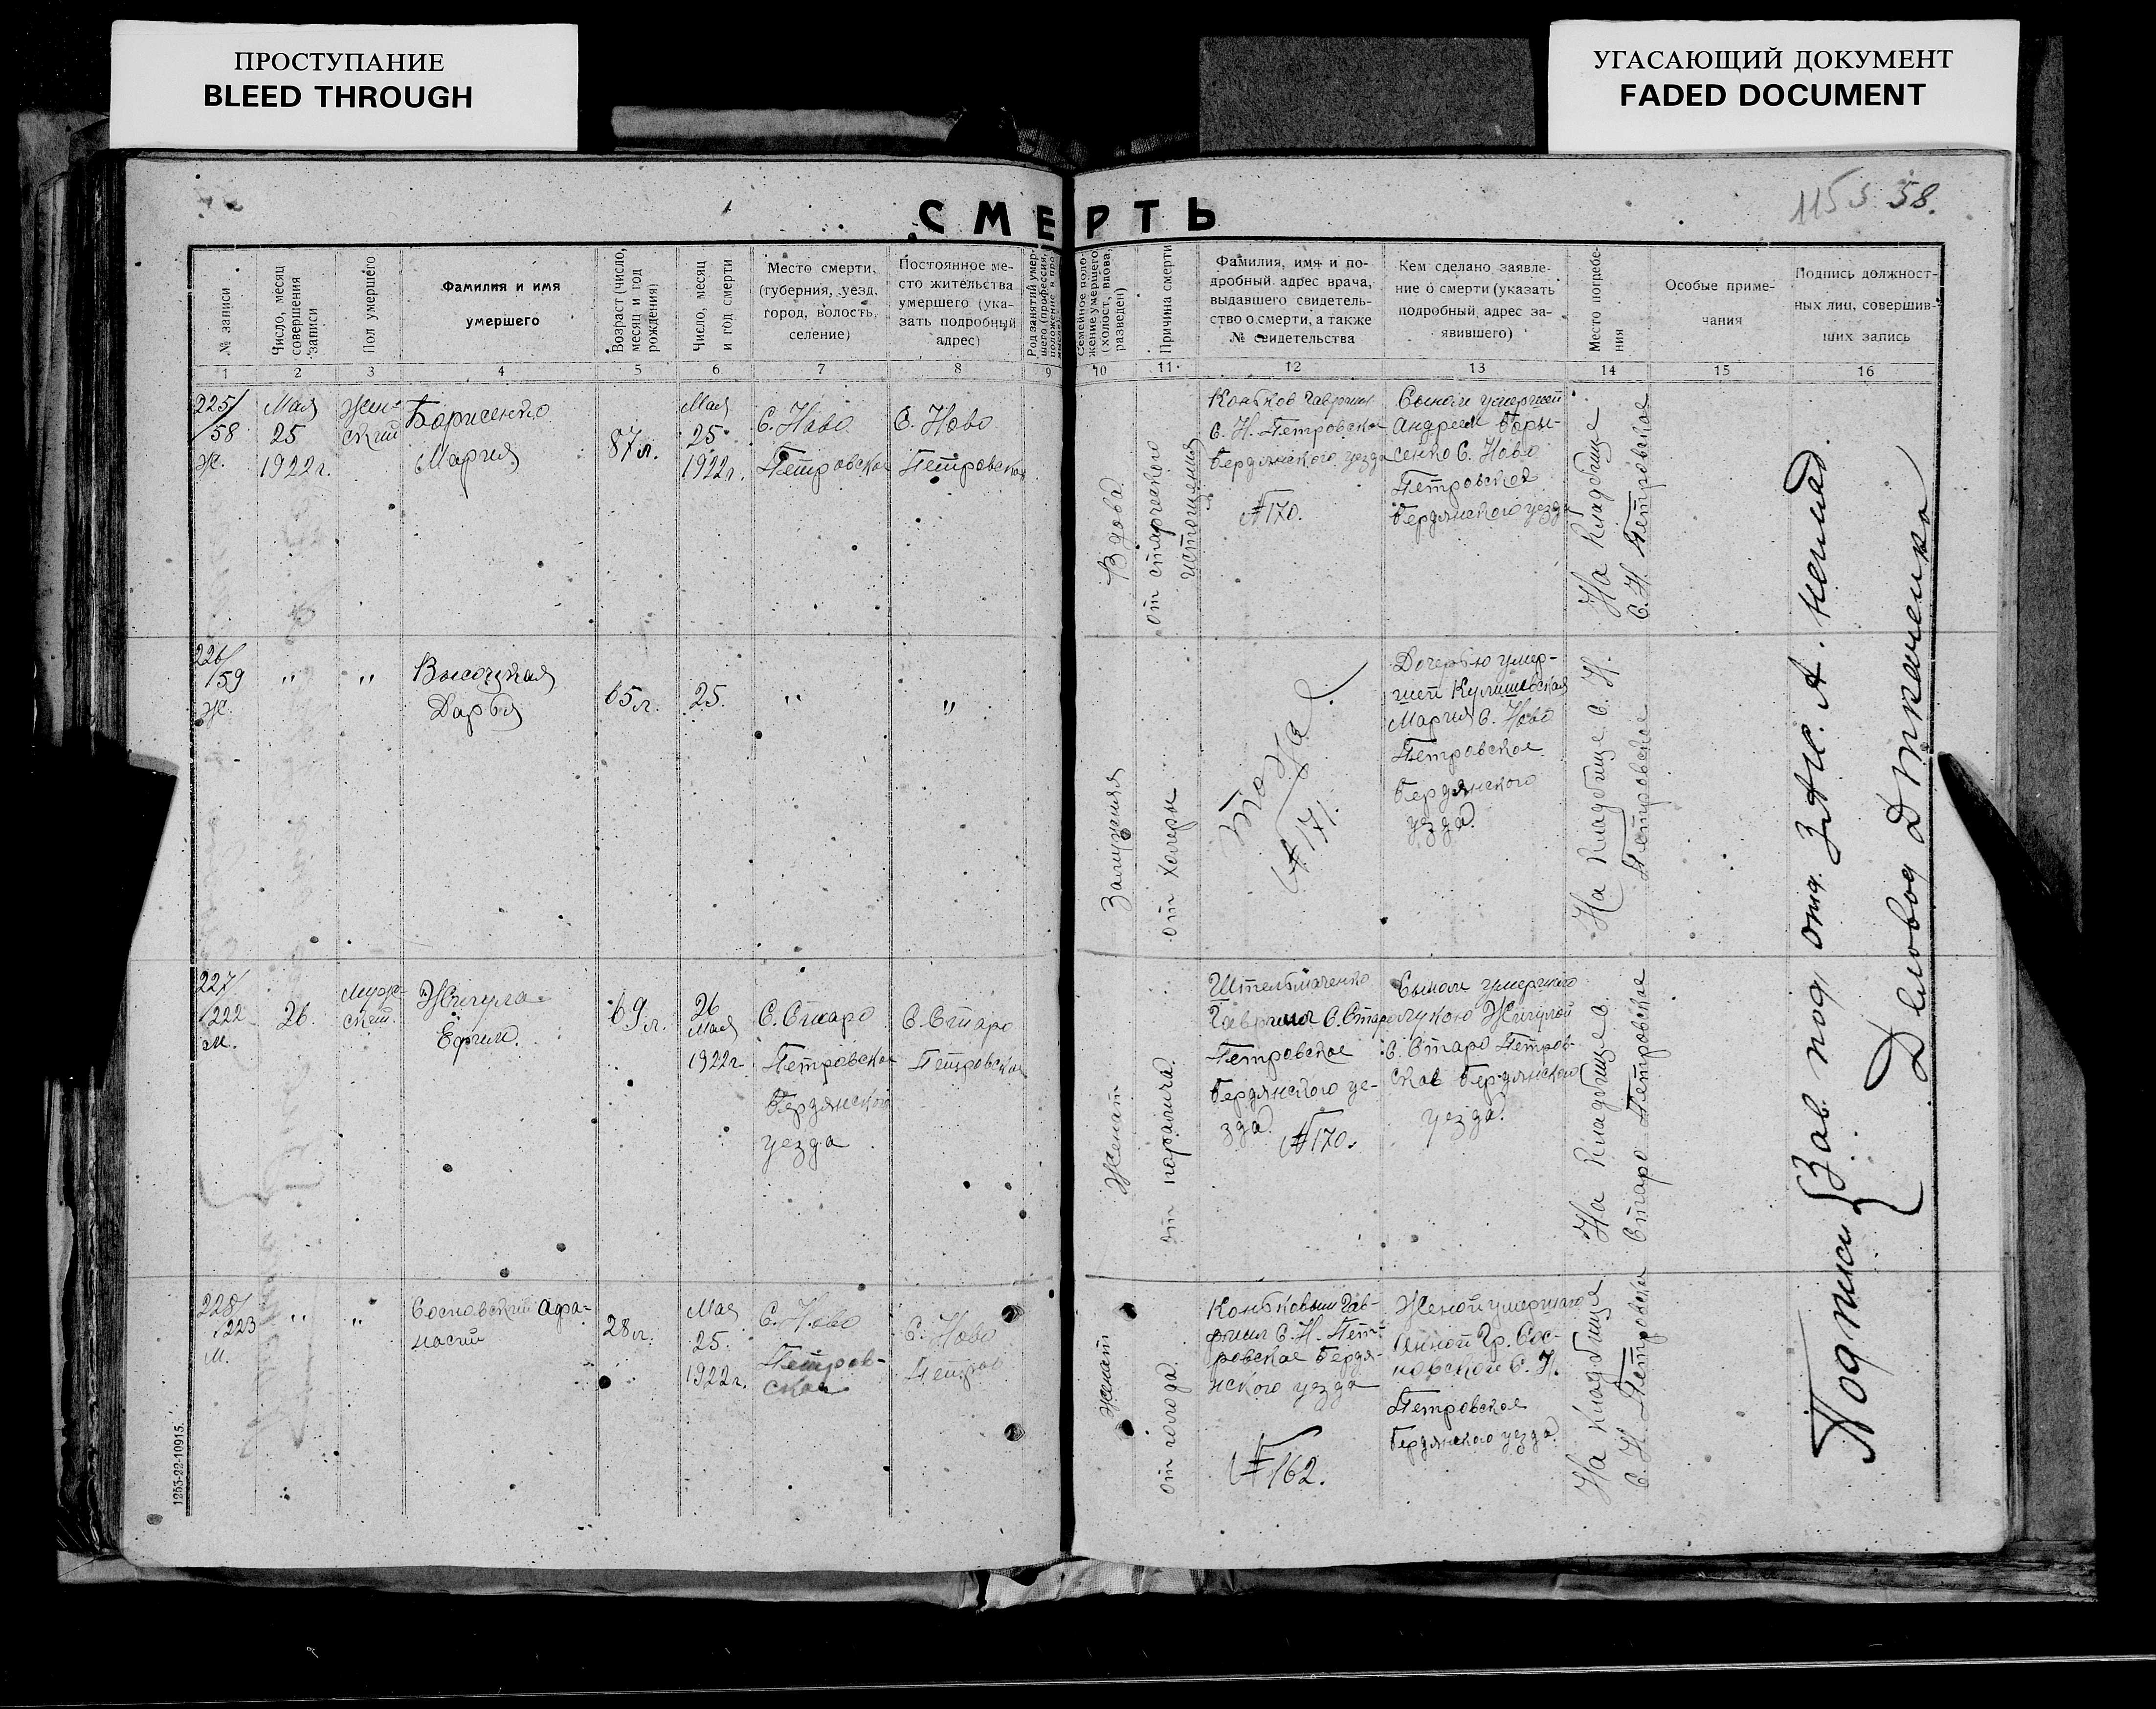 ПРОСТУПАНИЕ
BLEED THROUGH
УГАСАЮЩИЙ ДОКУМЕНТ
FADED DOCUMENT
58.
СМЕРТЬ
№ записи
Число, месяц
совершения
записи
Пол умершего
Фамилия и имя
умершего
Возраст (число,
месяц и год
рождения)
Число, месяц
и год смерти
Место смерти,
(губерния, уезд,
город, волость,
селение)
Постоянное ме-
сто жительства
умершего (ука-
зать подробный
адрес)
Род занятий умер-
шего (профессия,
положение в про-
Семейное поло-
жение умершего
(холост, вдова,
разведен)
Причина смерти
Фамилия, имя и по-
дробный адрес врача,
выдавшего свидетель-
ство о смерти, а также
№ свидетельства
Кем сделано заявле-
ние о смерти (указать
подробный адрес за-
явившего)
Место погребе-
ния
Особые приме-
чания
Подпись должност-
ных лиц, совершив-
ших запись
1 2 3 4 5 6 7 8 9 10 11 12 13 14 15 16
225/
/58
ж.
Мая
25
1922г.
Жен-
ский
Борисенко
Мария
87 л.
Мая
25
1922г.
С. Ново
Петровское
С. Ново
Петровское
Вдова
от старческого
истощения
Коньков Гаврил
С. Н. Петровское
Бердянского уезда
№ 170.
Сыном умершей
Андреем Бори-
сенко С. Ново
Петровское
Бердянского уезда
На кладбище
С. Н. Петровское
226/
/59
Ж.
" "
Высоцкая
Дарья
65 л.
25.
" "
Замужняя
от холеры
№ 171.
Дочерью умер-
шей
Мария С. Ново
Петровское
Бердянского
уезда.
На кладбище С. Н.
Петровское
227/
/222
м.
26.
Муж-
ской.
Жигула
Ефим.
69 л.
26
Мая
1922г.
С. Старо
Петровское
Бердянского
уезда
С. Старо
Петровское
Женат
от паралича.
Штельмаченко
Гаврил С. Старо
Петровское
Бердянского уе-
зда. № 170.
Сыном умершего
Лукою Жигулой
С. Старо Петров-
ское Бердянского
уезда.
На кладбище С.
Старо Петровское
228/
/223
М.
" "
Сосновский Афа-
насий
28 л.
Мая
25.
1922г.
С. Ново
Петров-
ское
С. Ново
Женат
от голода.
Коньковым Гав-
рил С. Н. Пет-
ровское Бердя-
нского уезда
№ 162.
Женой умершего
Анной Гр. Сос-
новской С. Н.
Петровское
Бердянского уезда.
На кладбище
С. Н. Петровское
Зав. под отд. ЗАГС. А.
Деловод Д Ткаченко
1253-22-10915.